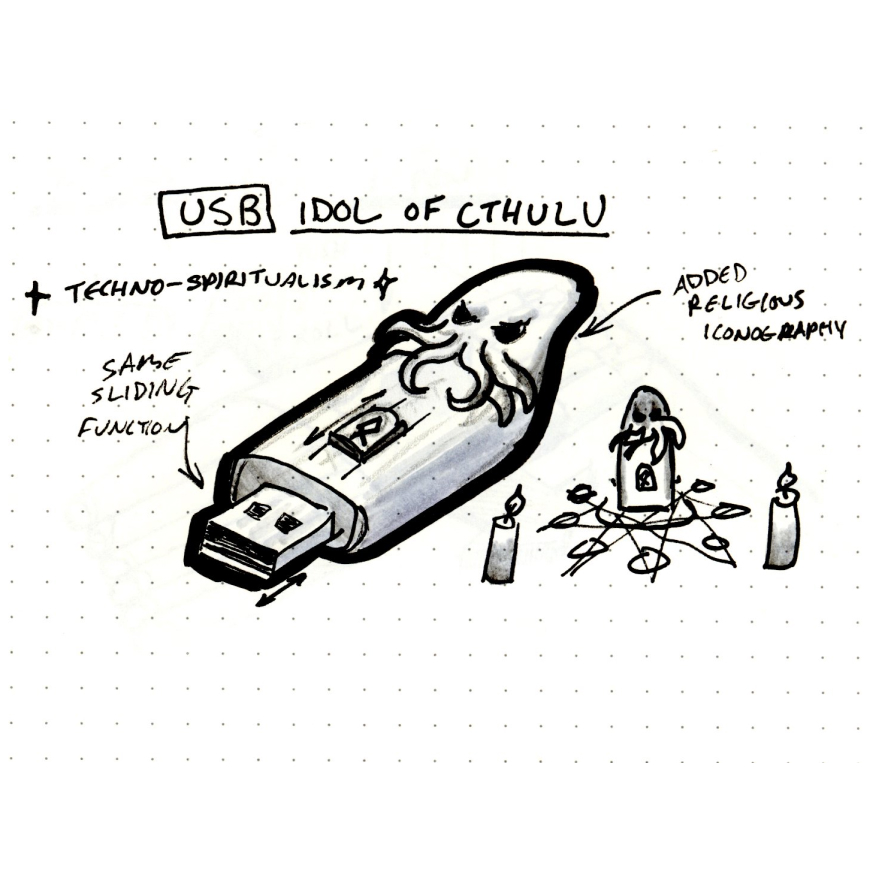 USB IDOL OF CTHULU
+ TECHNO-SPIRITUALISM +
ADDED
RELIGIOUS
ICONOGRAPHY
SAME
SLIDING
FUNCTION